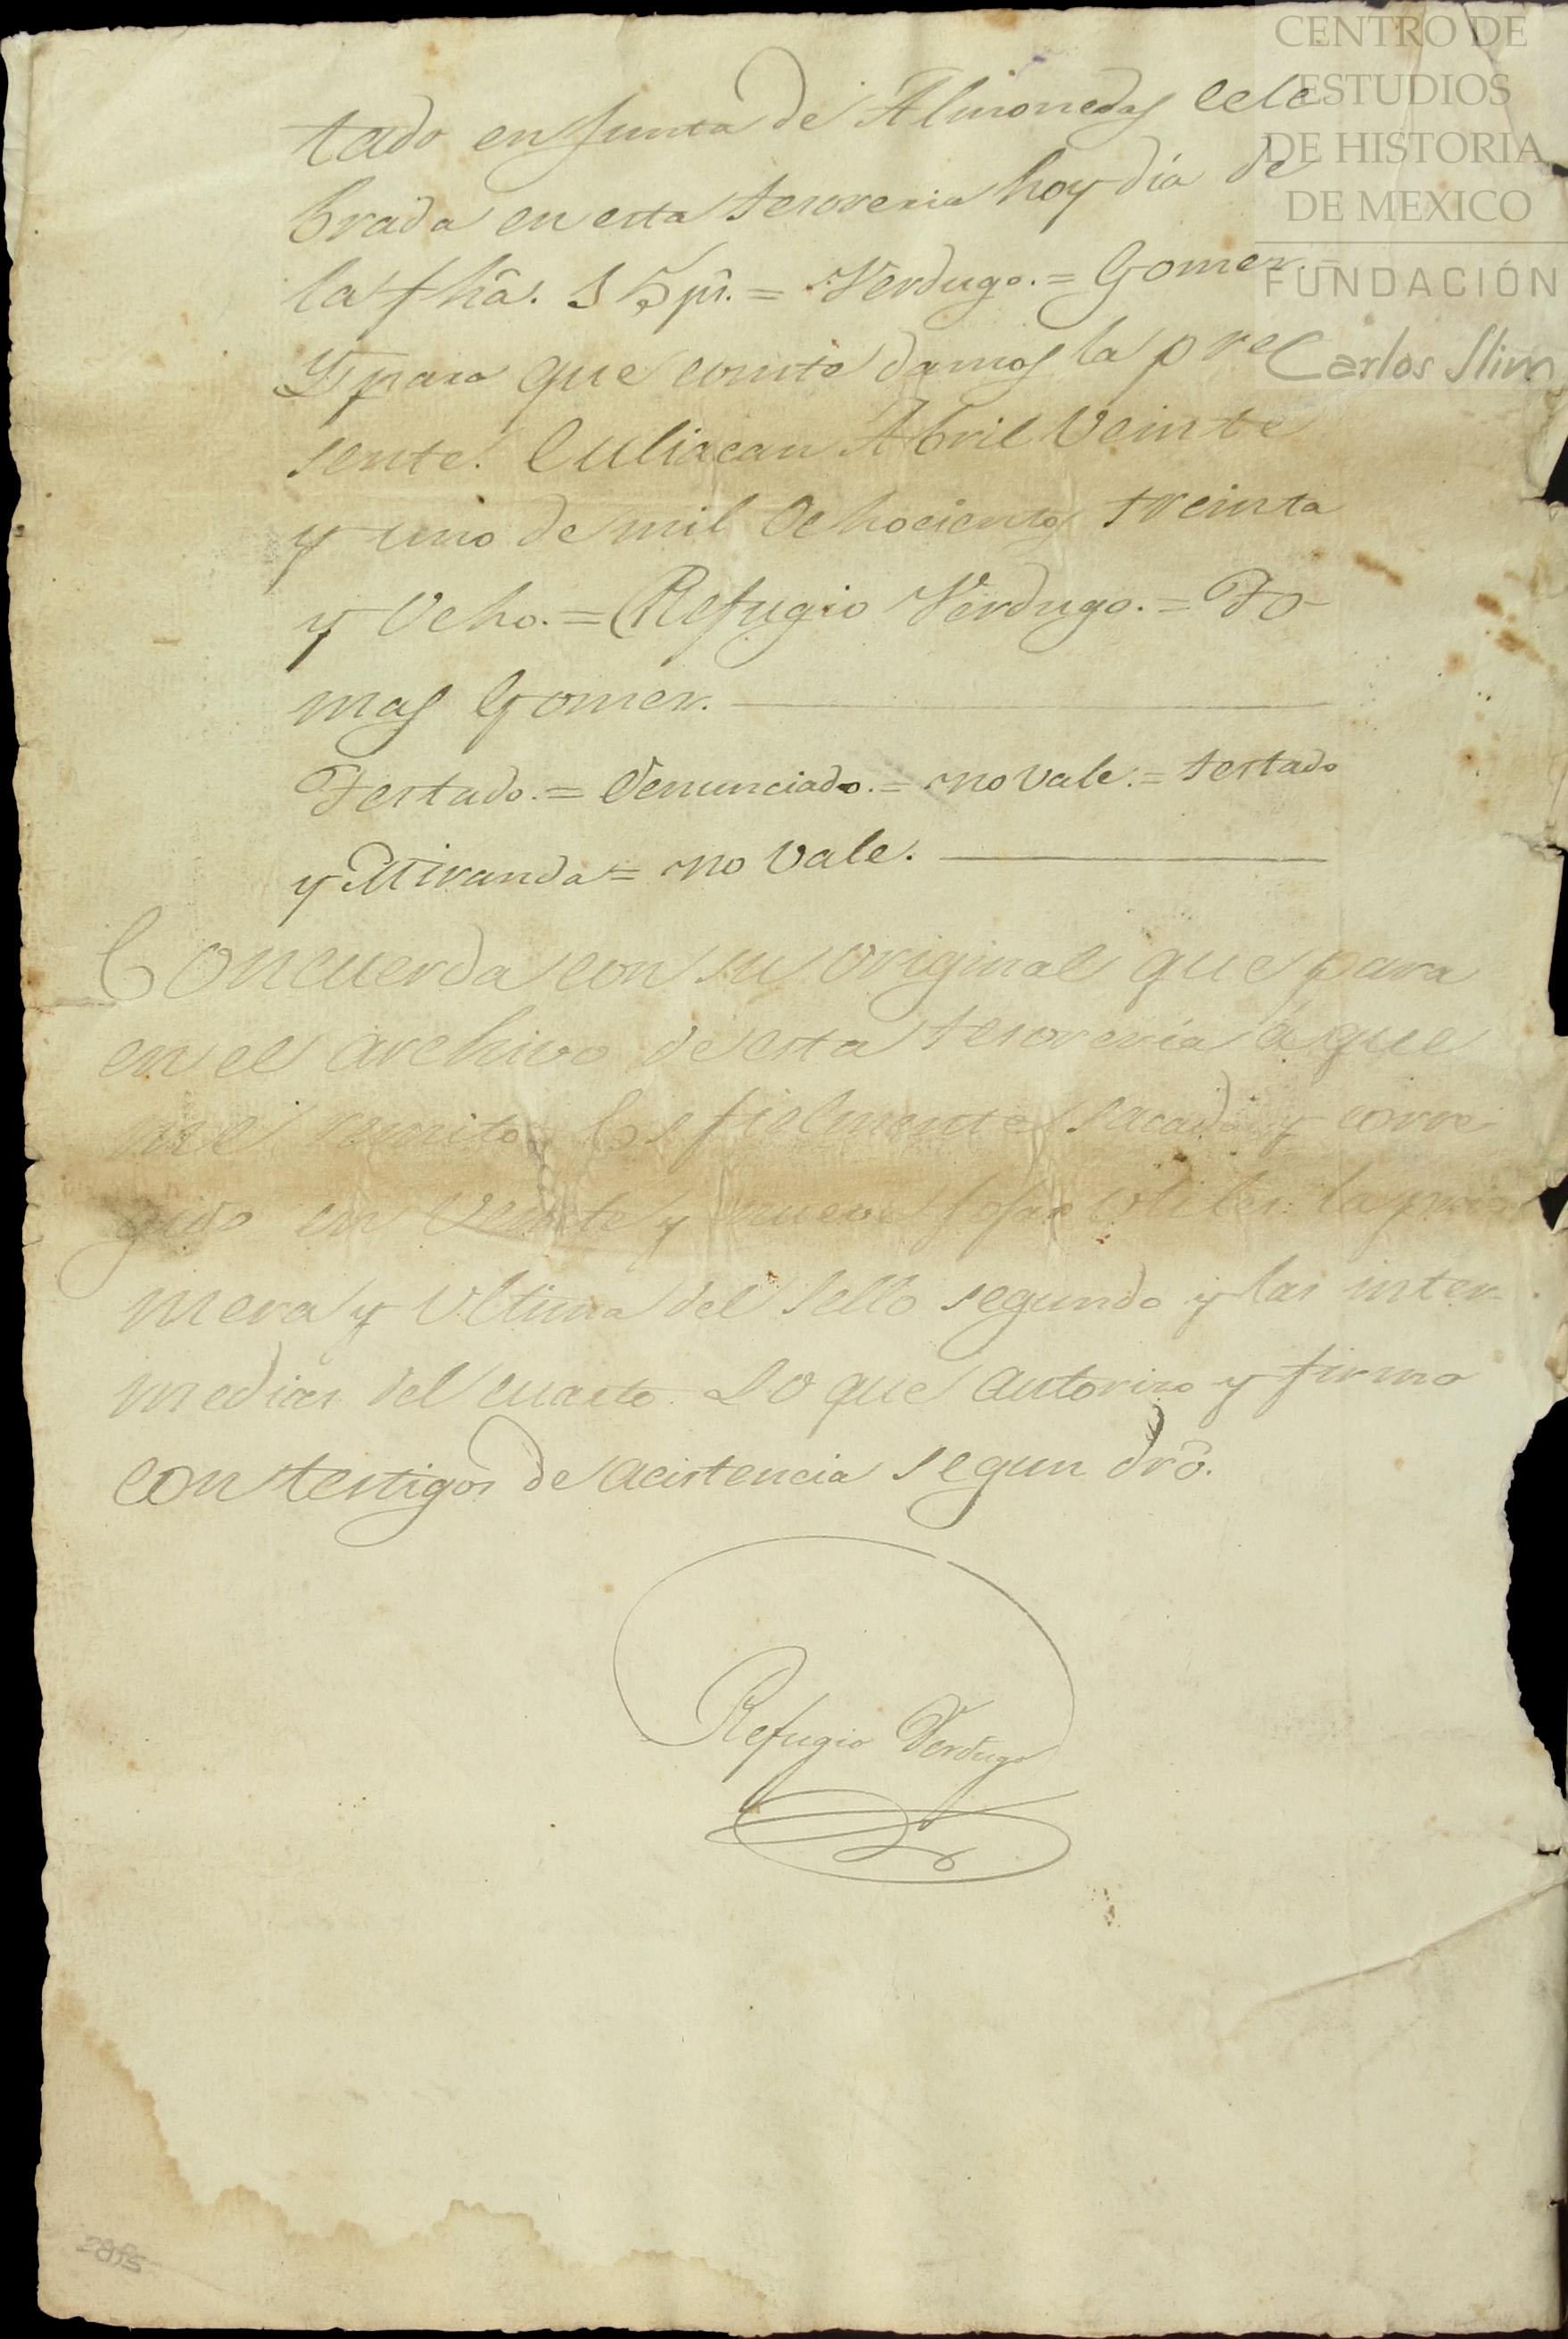 CENTRO DE
ESTUDIOS
DE HISTORIA
DE MEXICO
FUNDACIÓN
Carlos Slim
tado en Junta de Almonedas cele
brada en esta tesoreria hoy dia de
la fhâ. 15 ps. = Verdugo. = Gomez.
Y para que conste damos la pre
sente. Culiacan Abril veinte
y uno de mil Ochocientos treinta
y Ocho. = Refugio Verdugo. = To-
mas Gomez.
Testado. = Denunciado. = no vale. = testado
y Miranda = no vale.
Concuerda con su original que para
en el archivo de esta tesorería á que
me remito, Es fielmente sacado y corre
gido en Veinte y nueve fojas utiles la pri
mera y Ultima del Sello segundo y las inter-
medias del cuarto. Lo que autorizo y firmo
con testigos de acistencia segun drô.
Refugio Verdugo